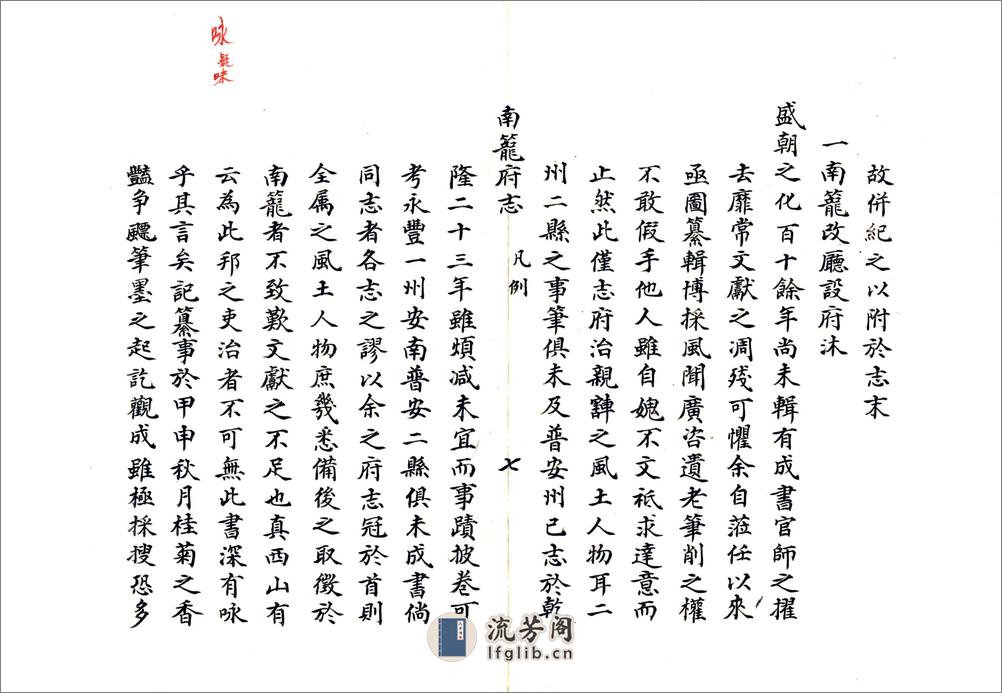 故併紀之以附於志末
一南籠改廳設府沐
盛朝之化百十餘年尚未輯有成書官師之擢
去靡常文獻之凋殘可懼余自蒞任以來
亟圖纂輯博採風聞廣咨遺老筆削之權
不敢假手他人雖自媿不文祗求達意而
止然此僅志府治親轄之風土人物耳二
州二縣之事筆俱未及普安州已志於乾
南籠府志 凡例 七
隆二十三年雖煩減未宜而事蹟披卷可
考永豐一州安南普安二縣俱未成書倘
同志者各志之謬以余之府志冠於首則
全属之風土人物庶幾悉備後之取徵於
南籠者不致歎文獻之不足也真西山有
云為此邦之吏治者不可無此書深有咏
乎其言矣記纂事於甲申秋月桂菊之香
豔争飃筆墨之起訖觀成雖極採搜恐多
咏
疑味
流芳阁
lfglib.cn